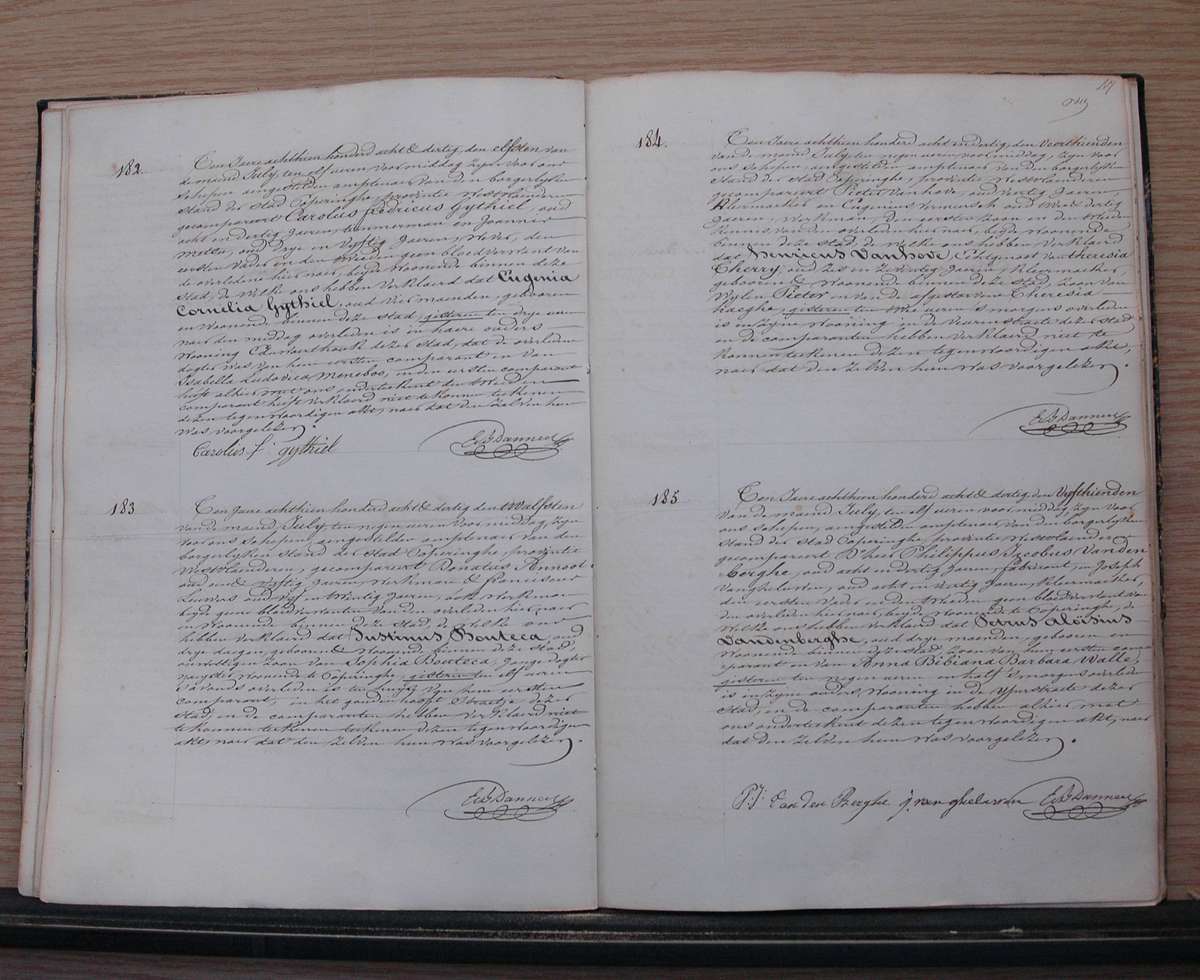 182.
Ten Jaere achthien honderd acht & dertig den elfsten van
de maend July, ten elf ueren voormiddag zijn voor ons
schepen aengestelden amptenaer van den borgerlyken
stand der stad Poperinghe, provintie Westvlaenderen
gecompareert Carolus Fedricus Gythiel, oud
acht en dertig Jaeren, timmerman en Joannes
oud drye en vyftig Jaeren, Wever, den
eersten vader en den tweeden geen bloedverwant van
de overleden hier naer, beyde woonende binnen deze
stad, de welke ons hebben verklaerd dat Eugenia
Cornelia Gythiel, oud vier maenden, geboren
en woonende binnen deze stad, gisteren ten drye ueren
naer den middag overleden is in haere ouders
wooning dezer stad, dat de overleden
dogter was van hem eersten comparant en van
Isabella Ludovica Meneboo, en den eersten comparant
heeft alhier met ons onderteekent den tweeden
comparant heeft verklaerd niet te konnen teekenen
dezen tegenwoordigen akt, naer dat den zelven hem
was voorgelezen.
Carolus f. gythiel
183
Ten Jaere achthien honderd acht & dertig den twalfsten
van de maend July ten negen ueren voormiddag, zyn
voor ons schepen, aengestelden amptenaer van den
borgerlyken stand der stad Poperinghe, provintie
Westvlaenderen, gecompareert Donatus
oud en vyftig Jaeren, Werkman & Franciscus
oud vyf en twintig Jaeren, ook Werkman
beyde geene bloedverwanten van den overleden hier naer
en woonende binnen deze stad, de welke ons
hebben verklaerd dat Justinus Bouteca, oud
drye dagen, geboren & woonende binnen deze stad
zoon van Sophia Bouteca, Jonge dogter
woonende te Poperinghe, gisteren ten elf ueren
s'avonds overleden is ten huyze van hem eersten
comparant, in het gouden hoofd straetje dezer
stad, en de comparanten hebben verklaerd niet
te konnen teekenen dezen tegenwoordigen
akt, naer dat den zelven hem was voorgelezen.
184.
Ten Jaere achthien honderd acht en dertig den veerthienden
van de maend July, ten negen ueren voormiddag, zyn voor
ons schepen, aengestelden amptenaer van den borgerlyken
stand der stad Poperinghe, provintie Westvlaenderen
gecompareert Pieter Vanhove, oud veertig Jaeren,
Kleermaeker en Eugenius oud dertig
Jaeren, Werkman, den eersten zoon en den tweeden
kennis van den overleden hier naer, beyde woonende
binnen deze stad, de welke ons hebben verklaerd
dat Henricus Vanhove, Echtgenoot van theresia
Cherry, oud zes en zeventig Jaeren, Kleermaeker,
geboren & woonende binnen deze stad, zoon van
wylen Pieter en van de afgestorvene Theresia
haeghe, gisteren ten twee ueren s'morgens overleden
is in zyne wooning in de straete dezer stad
en de comparanten hebben verklaerd niet te
konnen teekenen dezen tegenwoordigen akt,
naer dat den zelven hem was voorgelezen.
185.
Ten Jaere achthien honderd acht & dertig den vyfthienden
van de maend July ten elf ueren voormiddag, zyn voor
ons schepen, aengestelden amptenaer van den borgerlyken
stand der stad Poperinghe, provintie Westvlaenderen
gecompareert D'heer Philippus Jacobus Vanden
berghe, oud acht en dertig Jaeren, fabricant, en Joseph
Vanghelusten, oud acht en veertig Jaeren, Kleermaeker,
den eersten vader en den tweeden geen bloedverwant van
den overleden hier naer, beyde woonende te Poperinghe, de
welke ons hebben verklaerd dat Petrus Aloisius
Vandenberghe, oud drye maenden, geboren en
woonende binnen deze stad zoon van hem eersten com-
parant en van Anna Bibiana Barbara Walle,
gisteren ten negen ueren en half s'morgens overleden
is in zyne ouders wooning in de Yperstraete dezer
stad, en de comparanten hebben alhier met
ons onderteekent dezen tegenwoordigen akt, naer
dat den zelven hem was voorgelezen.
P. J. Van den Berghe